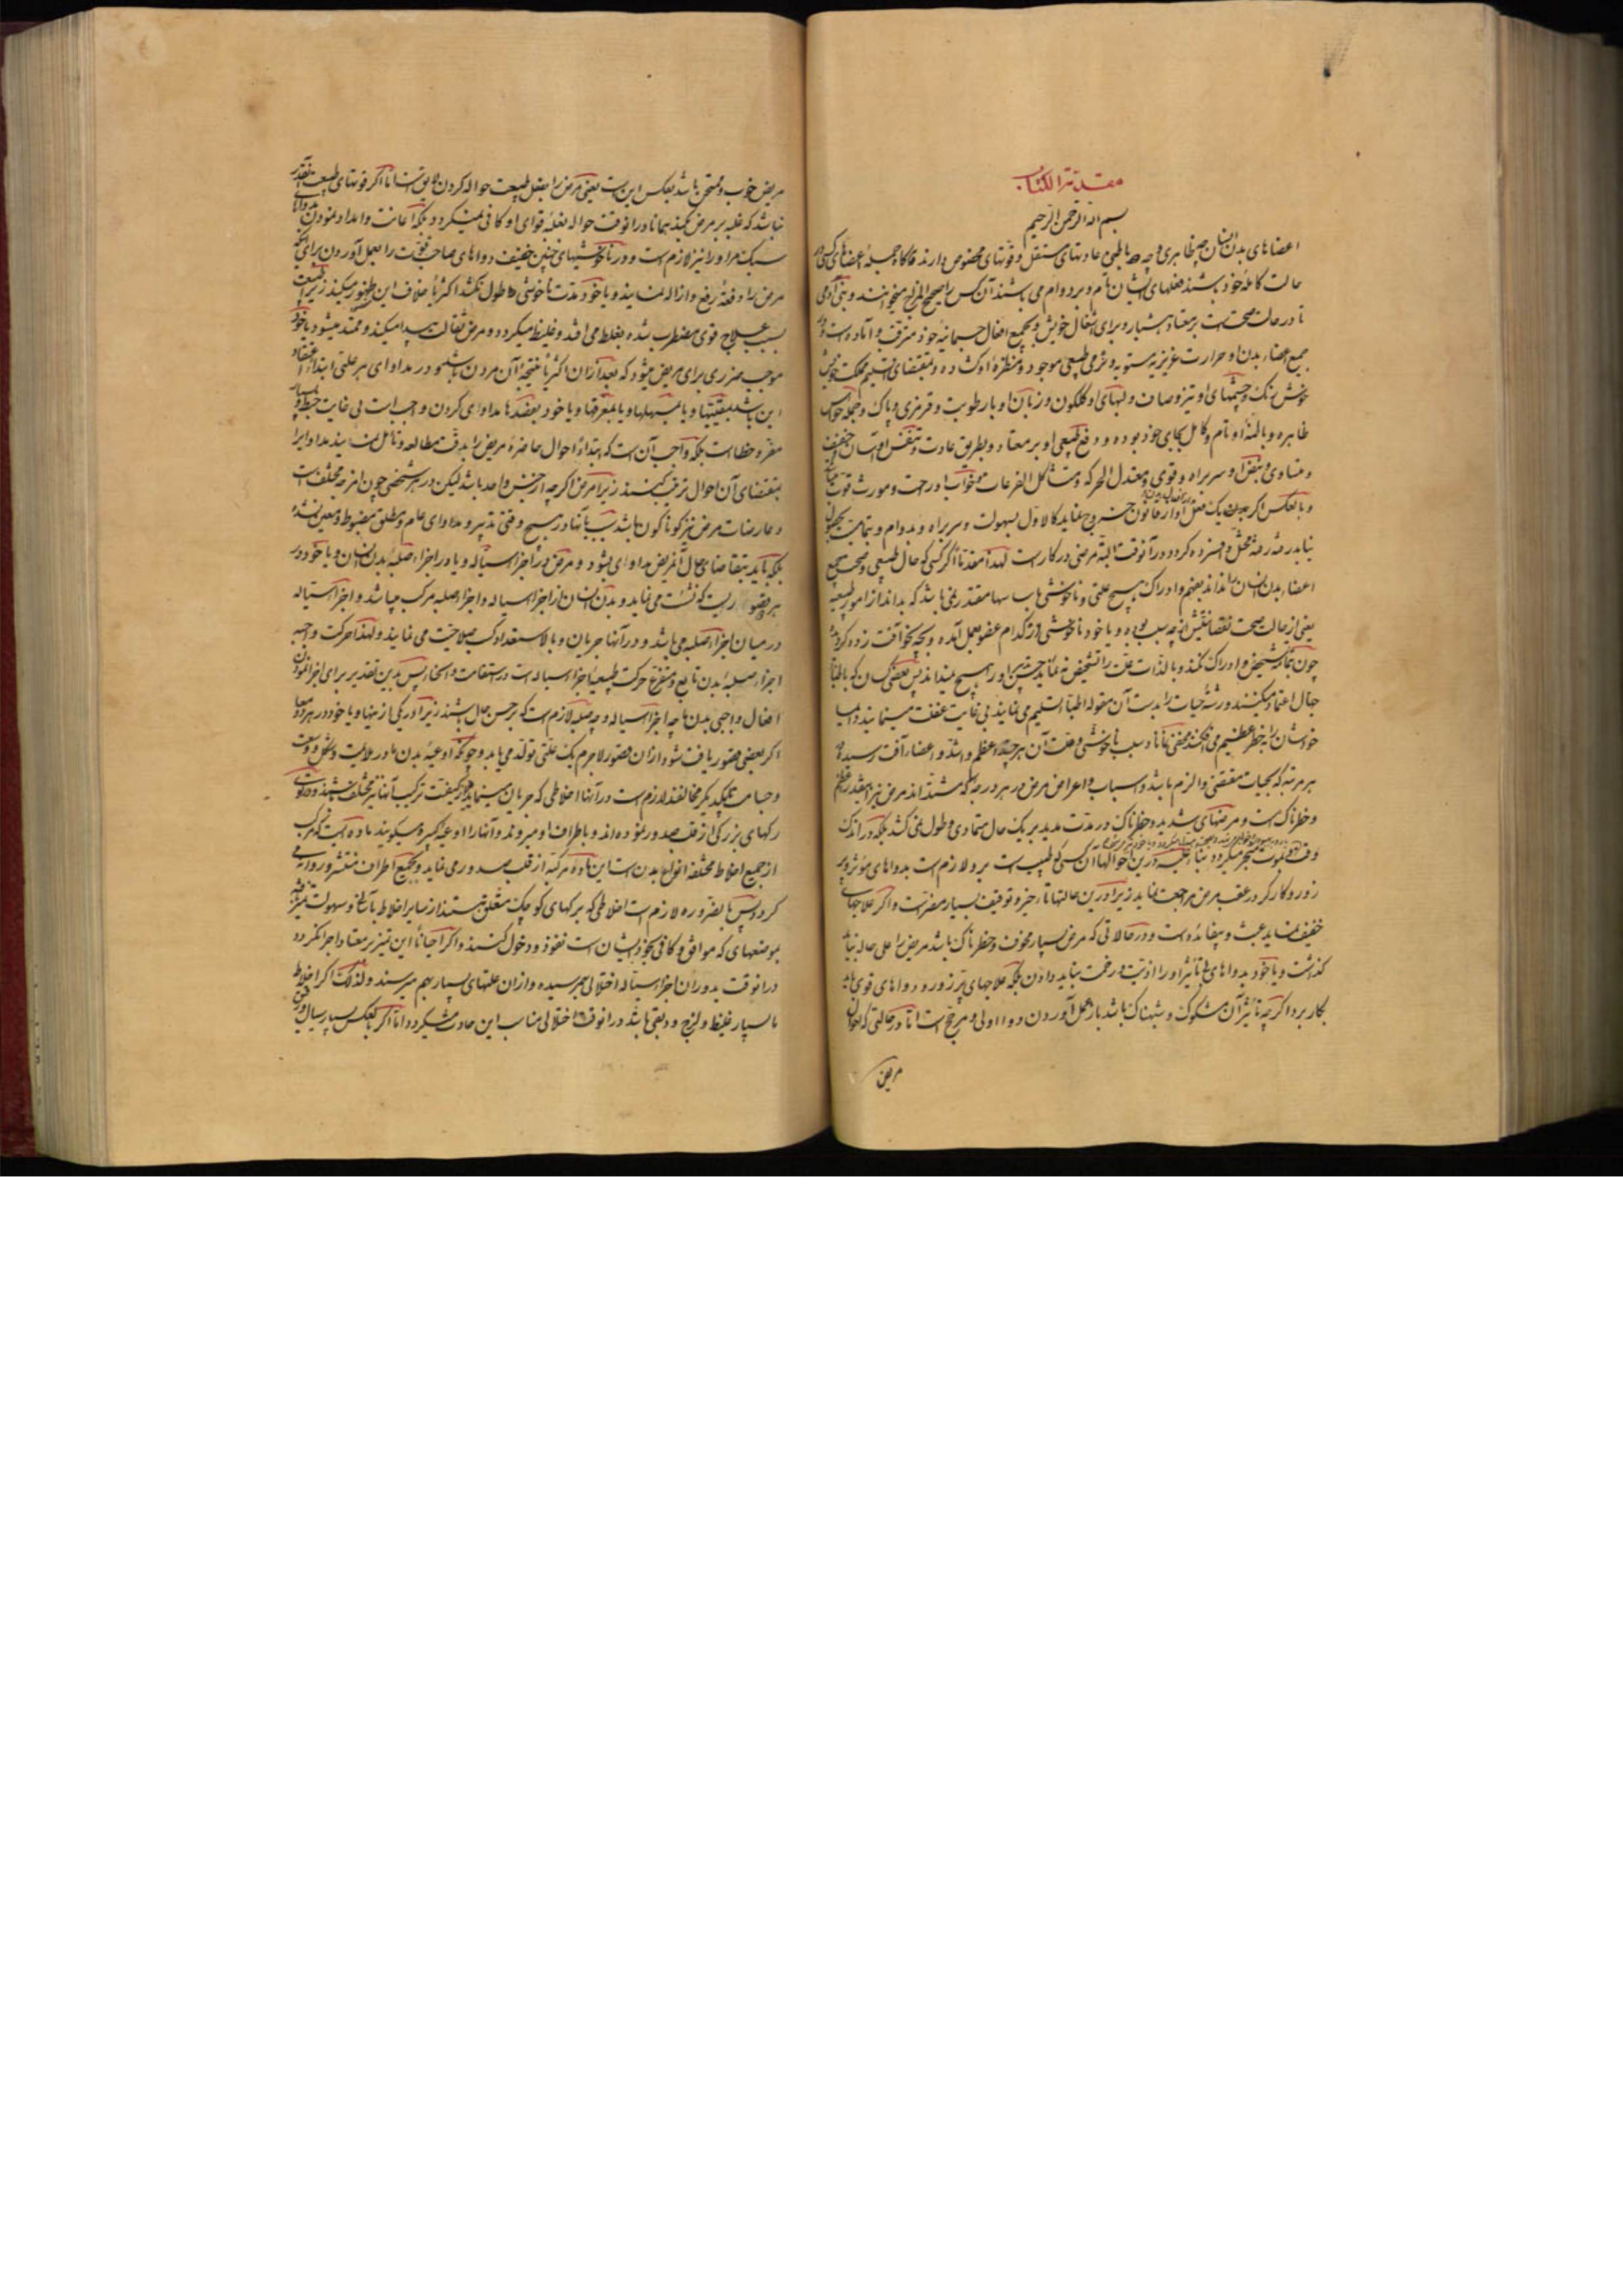 مقدمة الكتاب
بسم الله الرحمن الرحيم
اعضاهای بدن انسان چه ظاهری و چه باطنی عادتهای مستقل و قوتهای مخصوص دارند هرگاه جمله اعضای کسی در
حالت کامله خود باشند و فعلهای ایشان تام و بر دوام می باشند آن کس را صحیح المزاج میخوانند و بنی آدمی
تا در حالت صحت است بر معتاد هشیار و برای اشغال خویش و بجمیع افعال جسمانیه خود مترقب و آماده است و در
جمیع اعضاء بدن او حرارت غریزیه مستویه و نرمی طبیعی موجود و منظره او کشاده و بمقتضای
خوش رنک و چشمهای او تیز و صاف و لبهای او کلکون و زبان او با رطوبت و قرمزی و پاک و جمله حواس
ظاهره و باطنه او تام و کامل بجای خود بوده و دفع طبیعی او بر معتاد و بطریق عادت و تنفس او آسان خفیف
و متساوی و نبض او سربراه و قوی و معتدل الحرکه و خواب او راحت و مورث قوت
و بالعکس اگر یک فعل او از قانون خروج نماید کالاول بسهولت و سربراه و بدوام و بتمامیت بحصول
نیاید رفته رفته مختل و افسرده کردد در آنوقت البته مرضی در کار است لهذا مقدما اگر کسی که حال طبیعی و صحیح جمیع
اعضاء بدن انسان را نداند بفهم و ادراک هیچ علتی و ناخوشی مقتدر نمی باشد که بداند از امور طبیعیه
یعنی از حالت صحت نقصانش از چه سبب بوده و یا خود ناخوشی از کدام عضو بعمل آمده و بچه نحو آفت زده کردیده
چون بتمامه تشخیص و ادراک نکند و بالذات علت را تشخیص ننماید چیزی او را هیچ میداند پس بعضی کسان که باطبای
جهال اعتماد میکنند و رشته حیات را بدست آن مقوله اطبا تسلیم می نمایند بی غایت غفلت مینمایند و البته
خودشان را بخطر عظیم می افکنند مخفی نماناد سبب ناخوشی و علت آن هر چند اعظم و اشد و اعضاء آفت رسیده
هر مرتبه که بحیات مقتضی و الزم باشد و اسباب و اعراض مرض در هر درجه که مشتد اند مرض نیز آنقدر عظیم
و خطرناک است و مرضهای شدید و خطرناک در مدت مدید بر یک حال متمادی و طول نمی کشد بلکه در اندک
وقت بموت منجر میکردد بناء علیه درین حوالها آن کسی که طبیب است برو لازم است بدواهای مؤثر و پر
زور و کارکر در عقب مرض مراجعت نماید زیرا درین حالتها تأخیر و توقیف بسیار مضر است و اگر علاجهای
خفیف نماید عبث و بیفائده است و در حالاتی که مرض بسیار مخوف و خطرناک باشد مریض را علی حاله نباید
کذاشت و یا خود بدواهای بی تأثیر او را اذیت و زحمت نباید دادن بلکه علاجهای پر زور و دواهای قوی باید
بکار برد اگر چه تأثیر آن مشکوک و شبهناک باشد باز بعمل آوردن دوا اولی و مرجح است اما در حالتی که احوال
مریض
مریض خوب و ممتحن باشد بعکس این است یعنی مرض را بفعل طبیعت حواله کردن لایق است اما اگر قوتهای طبیعت آنقدر
نباشد که غلبه بر مرض بکند همانا در آنوقت حواله بغلبه قوای او کافی نمیکردد بلکه اعانت و امداد نمودن بدواهای
سبک مر او را نیز لازم است و در ناخوشیهای چنین خفیف دواهای صاحب قوت را بعمل آوردن برای آنکه
مرض را دفعة رفع و ازاله نمایند و یا خود مدت ناخوشی طول نکشد اکثریا خلاف این ظهور میکند زیرا طبیعت
بسبب علاج قوی مضطرب شده بغلط می افتد و غلیظ میکردد و مرض ثقالت پیدا میکند و ممتد میشود یا خود
موجب ضرری برای مریض میشود که بعد از آن اکثریا نتیجه آن مردن باشد و در مداوای هر علتی ابتداء اعتقاد
این باشد بمقیئها و یا بمسهلها و یا بمعرقها و یا خود بفصدها مداوای کردن واجب است بی غایت خبط و بسیار
مقره خطا است بلکه واجب آن است که ابتداء احوال حاضره مریض را بدقت مطالعه و تأمل نمایند مداوا را
بمقتضای آن احوال ترتیب کنند زیرا مرض اگر چه از جنس واحد باشد لیکن در هر شخصی چون امزجه مختلف است
و عارضات مرض نیز کوناکون باشد بسبب آنها در هیچ وقتی تدبیر و مداوای عام و مطلق مضبوط و معین نشده
بلکه باید بتقاضای حال آن مریض مداوای بشود و مرض در اجزاء سیاله و یا در اجزاء صلبه بدن انسان و یا خود در
هر دو که نشئت می نماید و بدن انسان از اجزاء سیاله و اجزاء صلبه مرکب میباشد و اجزاء سیاله
در میان اجزاء صلبه می باشد و در آنها جریان و بالاستعداد کسب صلاحیت می نمایند و لهذا حرکت واجبه
اجزاء صلبه بدن تابع و متفرع حرکت طبیعیه اجزاء سیاله است در استقامت و انحا پس بدین تقدیر برای اجرا نمودن
افعال واجبی بدن ها چه اجزاء سیاله و چه صلبه لازم است که بر حسن حال باشند زیرا در یکی از اینها و یا خود در هر دو معا
اگر بعضی قصور یافت شود از آن قصور لاجرم یک علتی تولد می یابد و چونکه اوعیه بدن ما در علامت و شکل و وسعت
و جسامت بیکدیکر مخالفند لازم است در آنها اخلاطی که جریان مینماید نیز کیفیت ترکیب آنها نیز مختلف باشند و در خون
رکهای بزرکی از قلب صدور نموده اند و باطراف او میروند و آنها را اوعیه کبیره میکویند ماده ایست که مرکب
از جمیع اخلاط مختلفة انواع بدن است این ماده مرکبه از قلب صدور می نماید و بجمیع اطراف منتشر و روانه می
کردد پس بالضروره لازم است اخلاطی که برکهای کوچک متعلق هستند از سایر اخلاط بآسانی و سهولت تمیز یافته
بموضعهای که موافق و کافی بحجم ایشان است نفوذ و دخول کنند و اکر احیانا این تمیز بر معتاد اجرا نکردد
در آنوقت بدوران اجزاء سیاله اختلالی بهم رسیده و از آن علتهای بسیار بهم میرسند و لذلک اگر اخلاط
ما بسیار غلیظ و لزج و دبقی باشد در آنوقت اختلالی مناسب این حادث میکردد و اما اگر بالعکس بسیار سیال و رقیق